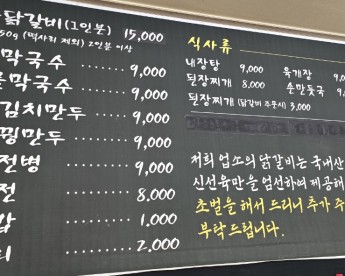 닭갈비(1인분) 15,000
50g (떡사리 제외) 2인분 이상
막국수 9,000
막국수 9,000
김치만두 9,000
꿩만두 9,000
전병 9,000
전 8,000
1,000
2,000
식사류
내장탕 9,000 육개장
된장찌개 8,000 손만둣국 9,
된장찌개 (닭갈비 주문시) 3,000
저희 업소의 닭갈비는 국내산
신선육만을 엄선하여 제공해
초벌을 해서 드리니 추가 주
부탁드립니다.